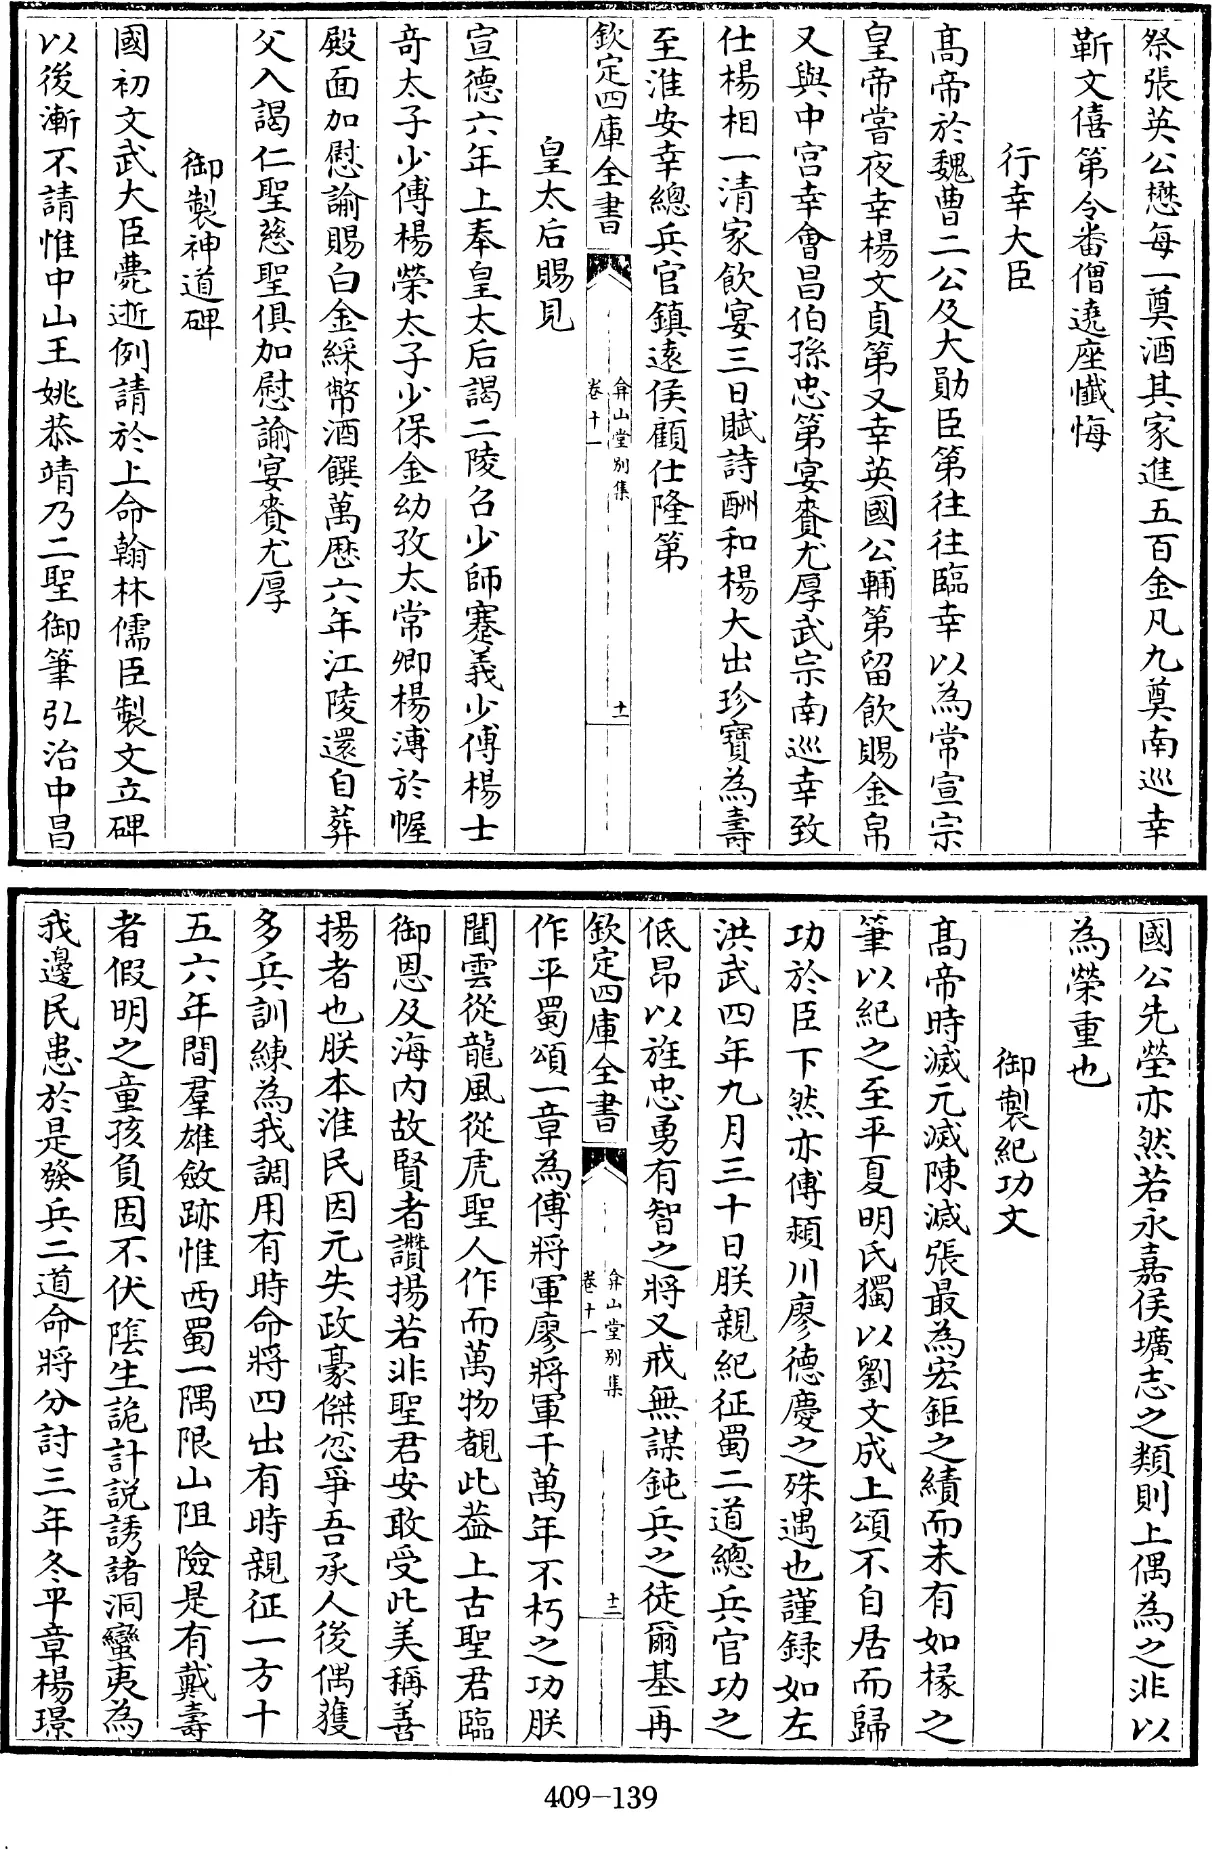 祭張英公懋每一奠酒其家進五百金凡九奠南巡幸
靳文僖第令番僧遶座懺悔
行幸大臣
髙帝於魏曹二公及大勛臣第徃徃臨幸以為常宣宗
皇帝嘗夜幸楊文貞第又幸英國公輔第留飲賜金帛
又與中宫幸會昌伯孫忠第宴賚尤厚武宗南巡幸致
仕楊相一清家飲宴三日賦詩酬和楊大出珍寶為壽
至淮安幸總兵官鎮逺侯顧仕隆第
欽定四庫全書
弇山堂别集
卷十一
十一
皇太后賜見
宣德六年上奉皇太后謁二陵召少師蹇義少傅楊士
竒太子少傅楊榮太子少保金幼孜太常卿楊溥於幄
殿面加慰諭賜白金綵幣酒饌萬厯六年江陵還自葬
父入謁仁聖慈聖俱加慰諭宴賚尤厚
御製神道碑
國初文武大臣薨逝例請於上命翰林儒臣製文立碑
以後漸不請惟中山王姚恭靖乃二聖御筆弘治中昌
國公先塋亦然若永嘉侯壙志之類則上偶為之非以
為榮重也
御製紀功文
髙帝時滅元滅陳滅張最為宏鉅之績而未有如椽之
筆以紀之至平夏明氏獨以劉文成上頌不自居而歸
功於臣下然亦傅潁川廖德慶之殊遇也謹録如左
洪武四年九月三十日朕親紀征蜀二道總兵官功之
低昻以旌忠勇有智之將又戒無謀鈍兵之徒爾基再
欽定四庫全書
弇山堂别集
卷十一
十二
作平蜀頌一章為傅將軍廖將軍千萬年不朽之功朕
聞雲從龍風從虎聖人作而萬物覩此葢上古聖君臨
御恩及海内故賢者讚揚若非聖君安敢受此美稱善
揚者也朕本淮民因元失政豪傑忿爭吾承人後偶獲
多兵訓練為我調用有時命將四出有時親征一方十
五六年間羣雄斂跡惟西蜀一隅限山阻險是有戴壽
者假明之童孩負固不伏隂生詭計説誘諸洞蠻夷為
我邊民患於是發兵二道命將分討三年冬平章楊璟
409-139